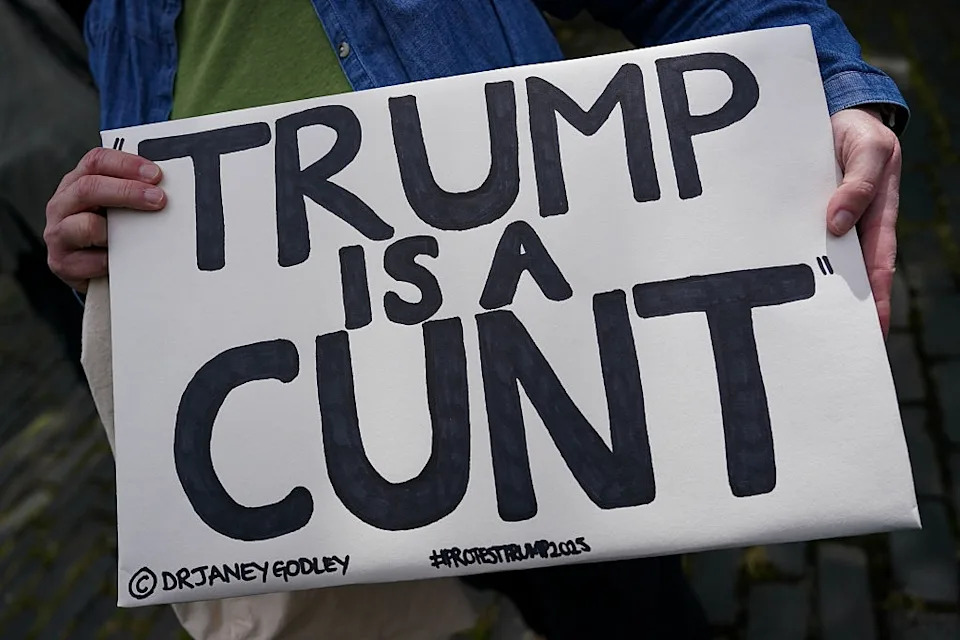 "TRUMP
IS A
CUNT"
© DR JANEY GODLEY
#PROTESTTRUMP2025